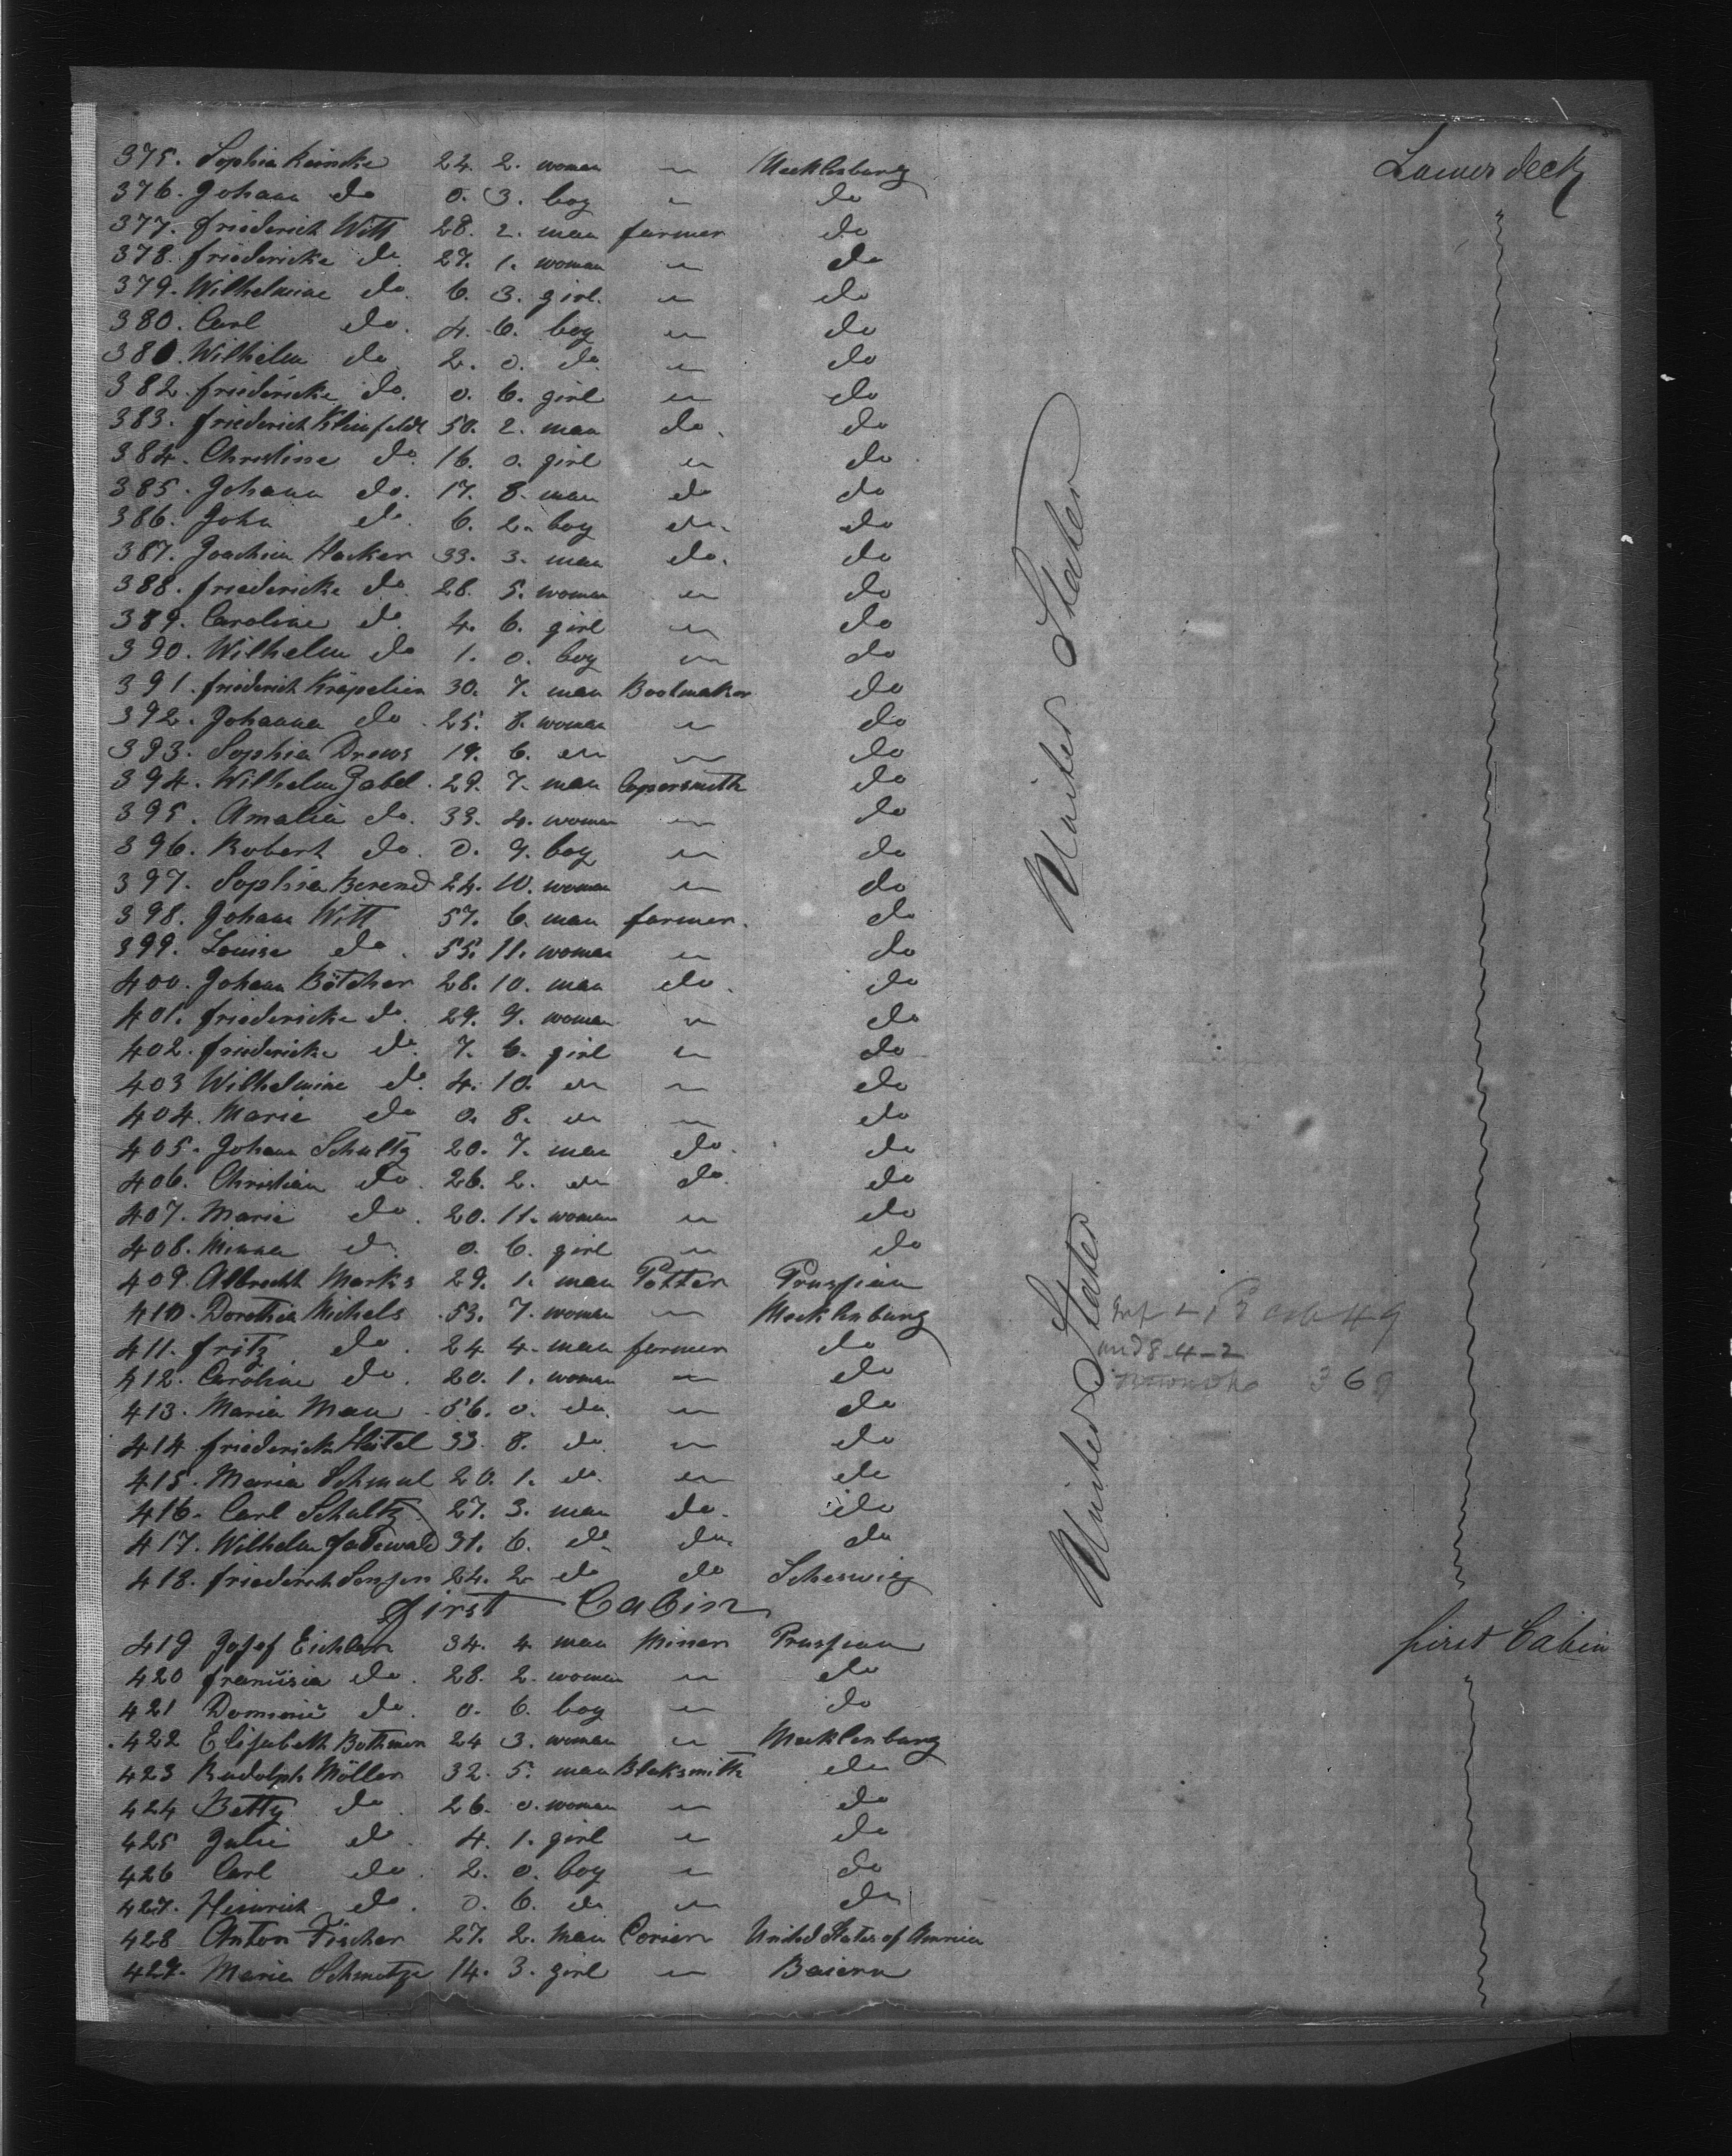 375. Sophia Reincke 24. 2. woman " Mecklenburg Lower deck
376. Johann do 0. 3. boy " do
377. friederich Witt 28. 2. man farmer do
378. friedericke do. 27. 1. woman " do
379. Wilhelmine do. 6. 3. girl. " do
380. Carl do. 4. 6. boy " do
381. Wilhelm do. 2. 0. do. " do
382. friedericke do. 0. 6. girl " do
383. friederich Kleinfeldt 50. 2. man do. do
384. Christine do. 16. 0. girl " do
385. Johann do. 17. 8. man do do
386. John do. 6. 2. boy do. do
387. Joachim Hacker 33. 3. man do. do
388. friedericke do. 28. 5. woman " do
389. Caroline do. 4. 6. girl " do
390. Wilhelm do 1. 0. boy " do
391. friederich Kräpelien 30. 7. man Bootmaker do
392. Johanna do. 25. 8. woman " do
393. Sophia Drews 19. 6. " " do
394. Wilhelm Zabel. 29. 7. man Copersmith do
395. Amalia do. 33. 4. woman " do
396. Robert do. 0. 9. boy " do
397. Sophia Berend 24. 10. woman " do
398. Johann Witt 57. 6. man farmer. do
399. Louise do. 55. 11. woman " do
400. Johann Bötcher 28. 10. man do. do
401. friedericke do. 29. 9. woman " do
402. friedericke do. 7. 6. girl " do
403 Wilhelmine do. 4. 10. " " do
404. Marie do 0. 8. " " do
405. Johann Schultz 20. 7. man do. do
406. Christian do. 26. 2. " do. do
407. Marie do. 20. 11. woman " do
408. Minna do. 0. 6. girl " do
409. Albrecht Marks 29. 1. man Potter Prussian
410. Dorothea Michels. 53. 7. woman " Mecklenburg
411. fritz do. 24 4. man farmer do
412. Caroline do. 20. 1. woman " do 369
413. Maria Mau. 56. 0. do. " do
414 friedericke Heitel 33. 8. do " do
415. Maria Schmul 20. 1. do. " do
416. Carl Schultz 27. 3. man do. do
417. Wilhelm 31. 6. do do. do
418. friederich 24. 2 do do Scheswig
United States
United States
first Cabin
419 Josef Eichler 34. 4 man Miner Prussian first Cabin
420 do. 28. 2. woman " do
421 do. 0. 6. boy " do
422 Elisabeth Bothmer 24 3. woman " Mecklenburg
423 Rudolph Möller 32. 5. man Blaksmith do
424 Betty do. 26. 0. woman " do
425 Julie do. 4. 1. girl " do
426 Carl do. 2. 0. boy " do
427. Heinrich do. 0. 6. do " do
428 Anton Fischer 27. 2. man United States of America
429. Maria Schmutze 14. 3. girl " Baiern